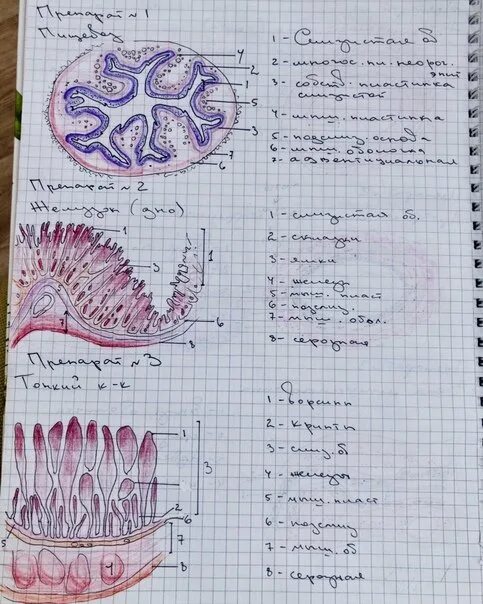 Препарат №1
Пищевод
1 - Слизистая об
2 - многос. пл. неорог. эпит
3 - собств. пластинка слизистой
4 - мыш. пластинка
5 - подслиз. основа
6 - мыш. оболочка
7 - адвентициальная
4
2
1
5
3
7
6
Препарат №2
Желудок (дно)
1 - слизистая об.
2 - складки
3 - ямки
4 - железы
5 - мыш. пласт
6 - подслиз.
7 - мыш. обол.
8 - серозная
1
1
3
6
7
8
Препарат №3
Тонкий к-к
1 - ворсинки
2 - крипты
3 - слиз. об
4 - железы
5 - мыш. пласт
6 - подслиз
7 - мыш. об
8 - серозная
1
3
2
6
5
7
4
8